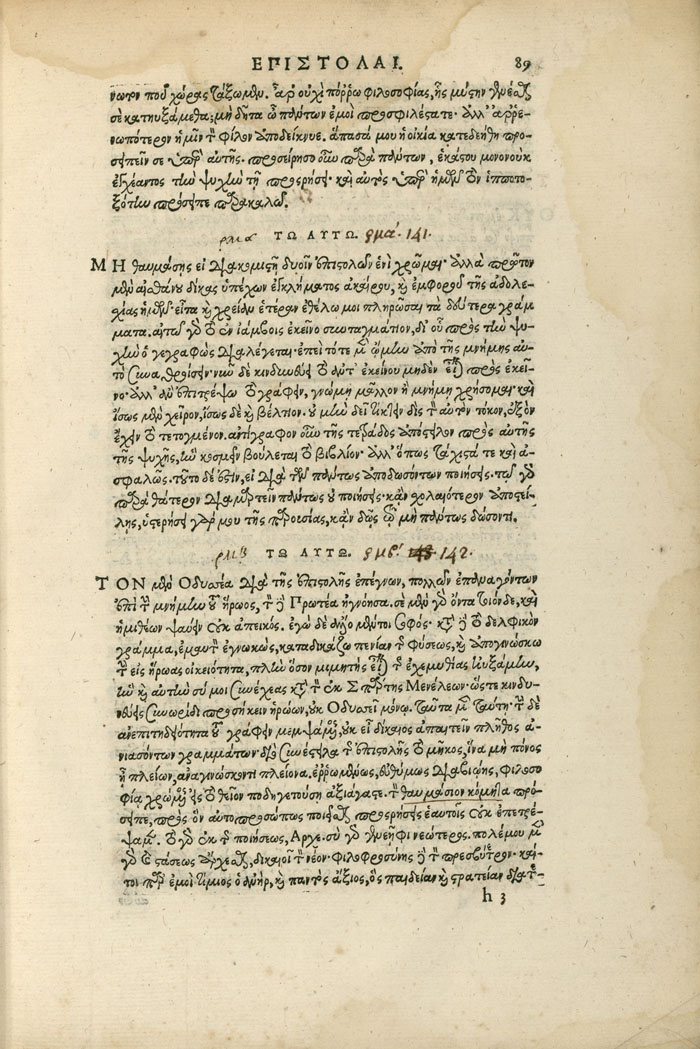 ΕΠΙΣΤΟΛΑΙ. 89
νωτον που χώρας τάξωμεν. ἆρ' οὐχὶ πόρρω φιλοσοφίας, ἧς μύστην γενέσθαι
σε κατηυξάμεθα; μὴ δῆτα ὦ πάντων ἐμοὶ προσφιλέστατε· ἀλλ' ἀρρε-
νωπότερον ἡμῖν τὸν φίλον ἀποδείκνυε. ἅπασά μου ἡ οἰκία κατεδεήθη προ-
σειπεῖν σε ὑπὲρ αὐτῆς· προσείρησο οὖν παρὰ πάντων, ἑκάστου μονονοὺκ
ἐκχέαντος τὴν ψυχὴν τῇ προσρήσει· καὶ αὐτὸς ὑπὲρ ἡμῶν τὸν ἱπποτο-
ξότην πρόσειπε παρακαλῶ.
ρμα ΤΩ ΑΥΤΩ. ϛμα'. 141.
ΜΗ θαυμάσῃς εἰ διακομιστῇ δυοῖν ἐπιστολῶν ἑνὶ χρῶμαι· ἀλλὰ πρῶτον
μὲν αἰσθάνου δίκας ὑπέχων ἐγκλήματος ἀκαίρου, καὶ ἐμφοροῦ τῆς ἀδολε-
σχίας ἡμῶν· εἶτα καὶ χρείαν ἑτέραν ἐθέλω μοι πληρῶσαι τὰ δεύτερα γράμ
ματα. αἰτῶ γὰρ τὸ ἐν ἰάμβοις ἐκεῖνο συνταγμάτιον, δι' οὗ πρὸς τὴν ψυ-
χὴν ὁ γεγραφὼς διαλέγεται· ἐπεὶ τότε μὲν ᾤμην ἀπὸ τῆς μνήμης αὐ-
τὸ συναθροίσειν· νῦν δὲ κινδυνεύει τὸ ἀντ' ἐκείνου μηδὲν εἶναι πρὸς ἐκεῖ-
νο· ἀλλ' ἂν ἐπιτρέψω τὸ γράφειν, γνώμῃ μᾶλλον ἢ μνήμῃ χρήσομαι· καὶ
ἴσως μὲν χεῖρον, ἴσως δὲ καὶ βέλτιον. οὐ μὴν δεῖ τίκτειν δὶς τὸν αὐτὸν τόκον, ἐξὸν
ἔχειν τὸ τετογμένον. ἀντίγραφον οὖν τῆς τετράδος ἀπόστειλον πρὸς αὐτῆς
τῆς ψυχῆς, ἣν κοσμεῖν βούλεται τὸ βιβλίον· ἀλλ' ὅπως τάχιστά τε καὶ ἀ-
σφαλῶς. τοῦτο δέ ἐστιν, εἰ διὰ τῶν πάντως ἀποδωσόντων ποιήσεις· τῷ γὰρ
παρὰ θάτερον διαμαρτεῖν πάντως οὐ ποιήσεις· κἂν σχολαιότερον ἀποστεί-
λῃς, ὑστερήσει γάρ μου τῆς παρουσίας, κἂν δῷς τῷ μὴ πάντως δώσοντι.
ρμβ ΤΩ ΑΥΤΩ. ϛμβ'. 142.
ΤΟΝ μὲν Ὀδυσσέα διὰ τῆς ἐπιστολῆς ἐπέγνων, πολλῶν ἐπαναγόντων
ἐπὶ τὴν μνήμην τοῦ ἥρωος, τὸν δὲ Πρωτέα ἠγνόησα. σὲ μὲν γὰρ ὄντα τοιόνδε, καὶ
ἡμιθέων ψαύειν οὐκ ἀπεικός. ἐγὼ δὲ ἀνὴρ μέντοι σοφός· κατὰ δὲ τὸ δελφικὸν
γράμμα, ἐμαυτὸν ἐγνωκώς, καταδικάζω πενίαν τῆς φύσεως, καὶ ἀπογινώσκω
τὴν εἰς ἥρωας οἰκειότητα, πλὴν ὅσον μιμητὴς εἶναι τῆς ἐχεμυθίας ηὐξάμην,
ἣν καὶ αὐτὴν σύ μοι συνέχεας κατὰ τὸν ἐκ Σπάρτης Μενέλεων· ὥστε κινδυ-
νεύεις συνωρίδι προσήκειν ἡρώων, οὐκ Ὀδυσσεῖ μόνῳ. ταῦτα μὲν ταύτῃ· τὴν δὲ
ἀνεπιτηδειότητα τοῦ γράφειν μεμψάμενος, οὐκ εἶ δίκαιος ἀπαιτεῖν πλῆθος ἀ-
νιασόντων γραμμάτων· διὸ συνέστειλα τῆς ἐπιστολῆς τὸ μῆκος, ἵνα μὴ πόνος
ᾖ πλείων, ἀναγινώσκοντι πλείονα. ἐρρωμένως, εὐθύμως διαβιῴης, φιλοσο
φίᾳ χρώμενος ἐπὶ τὸ θεῖον ποδηγετούσῃ ἀξιάγαστε. τὸν θαυμάσιον κόμητα πρό-
σειπε, πρὸς ὃν αὐτοπροσώπως ποιεῖσθαι προσρήσεις ἐμαυτοῖς οὐκ ἐπετρέ-
ψαμεν. τὸ γὰρ ἐκ τῆς ποιήσεως, Ἄρχε· σὺ γὰρ γενεῆφι νεώτερος. πολέμου μὲν
γὰρ καὶ στάσεως ἄρχεσθαι, δικαιοῖ τὸν νέον· φιλοφροσύνης δὲ τὸν πρεσβύτερον· καί-
τοι παρ' ἐμοὶ τίμιος ὁ ἀνήρ, καὶ παντὸς ἄξιος, ὃς παιδείαν καὶ στρατείαν διατε-
h 3